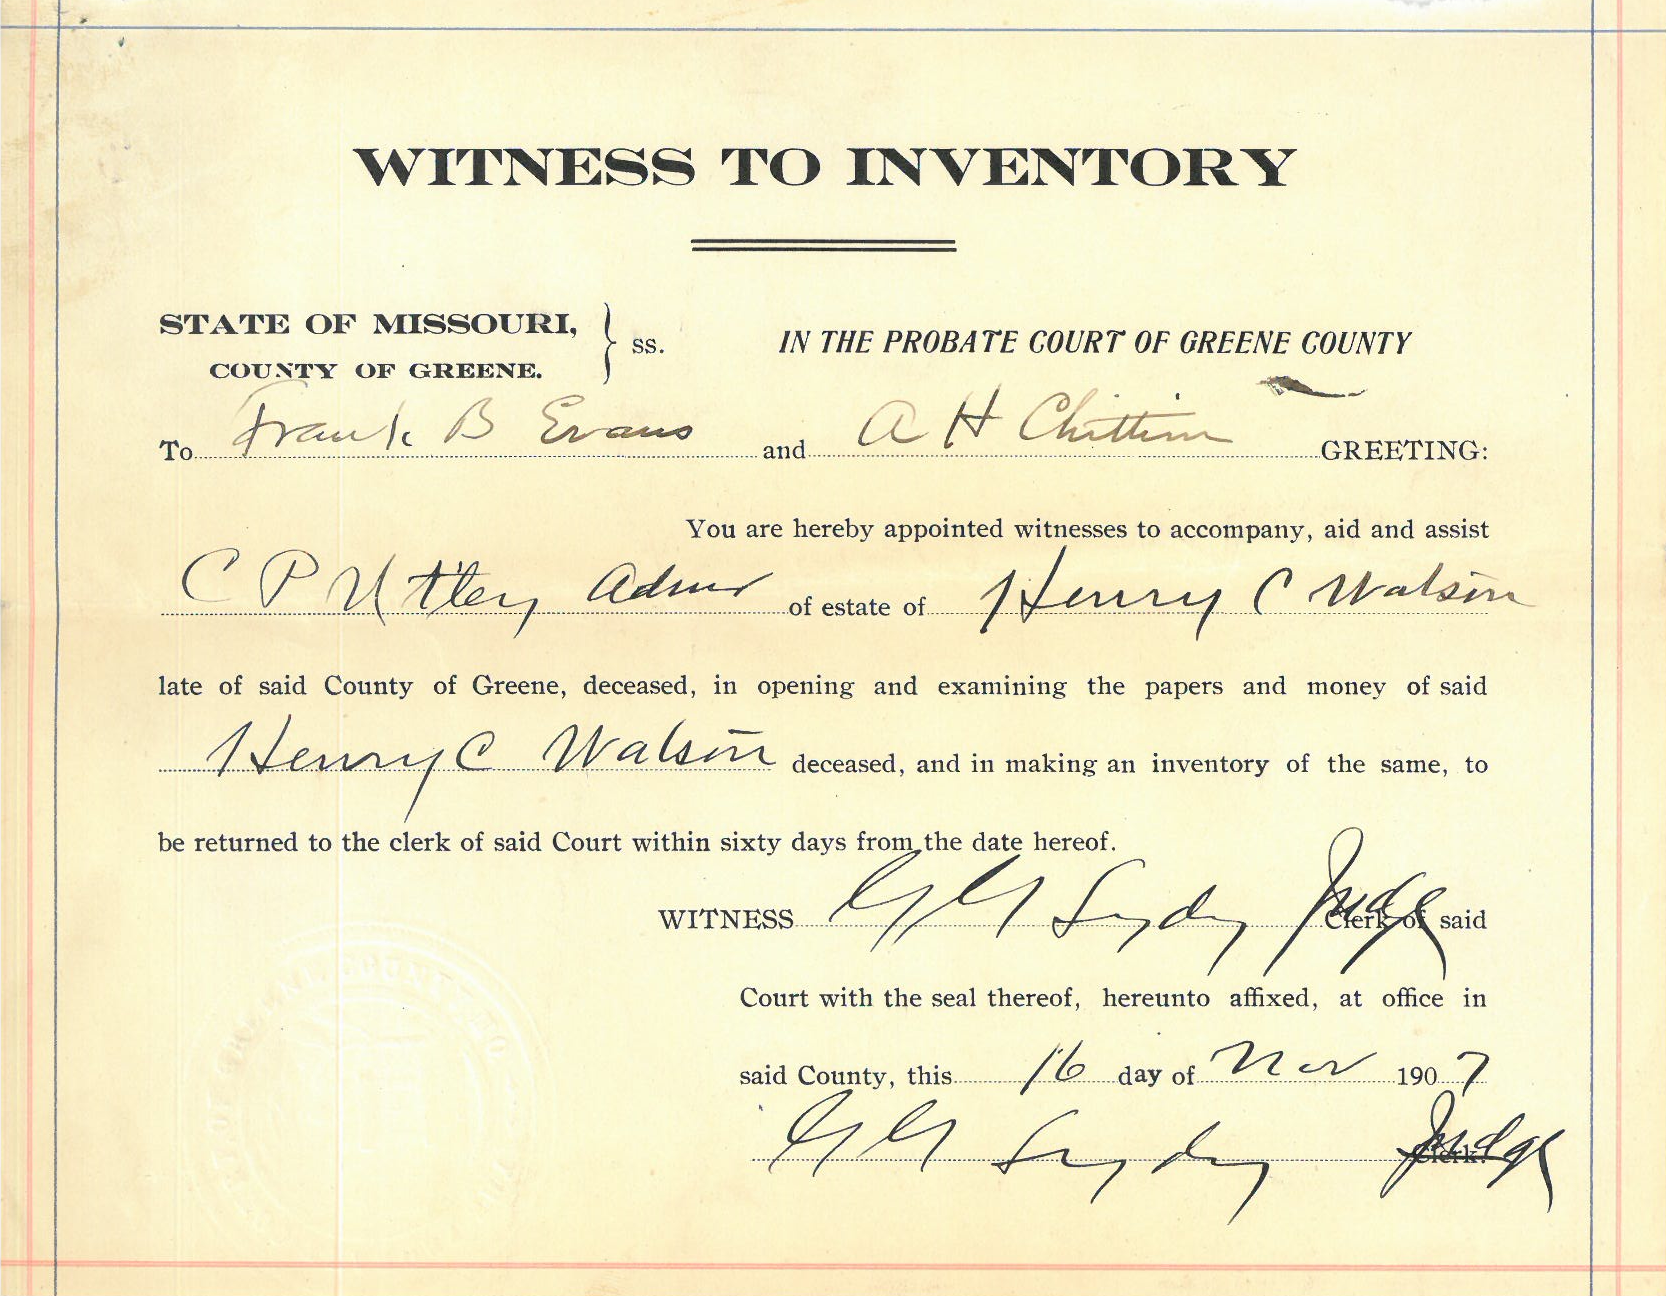 WITNESS TO INVENTORY
STATE OF MISSOURI,
COUNTY OF GREENE.
} ss.
IN THE PROBATE COURT OF GREENE COUNTY
To Frank B Evans and A H Chittim GREETING:
You are hereby appointed witnesses to accompany, aid and assist
C P Utley Admr of estate of Henry C Watson
late of said County of Greene, deceased, in opening and examining the papers and money of said
Henry C Watson deceased, and in making an inventory of the same, to
be returned to the clerk of said Court within sixty days from the date hereof.
WITNESS Judge Clerk of said
Court with the seal thereof, hereunto affixed, at office in
said County, this 16 day of Nov 1907
Judge Clerk.